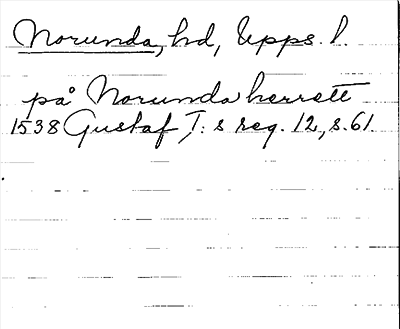 Norunda, hd, Upps. l.
på Norunda herrett
1538 Gustaf I: s reg. 12, s. 61.